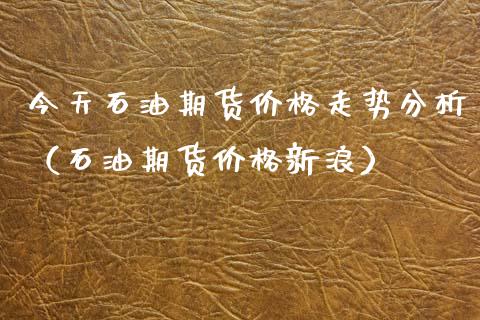 今天石油期货价格走势分析
（石油期货价格新浪）